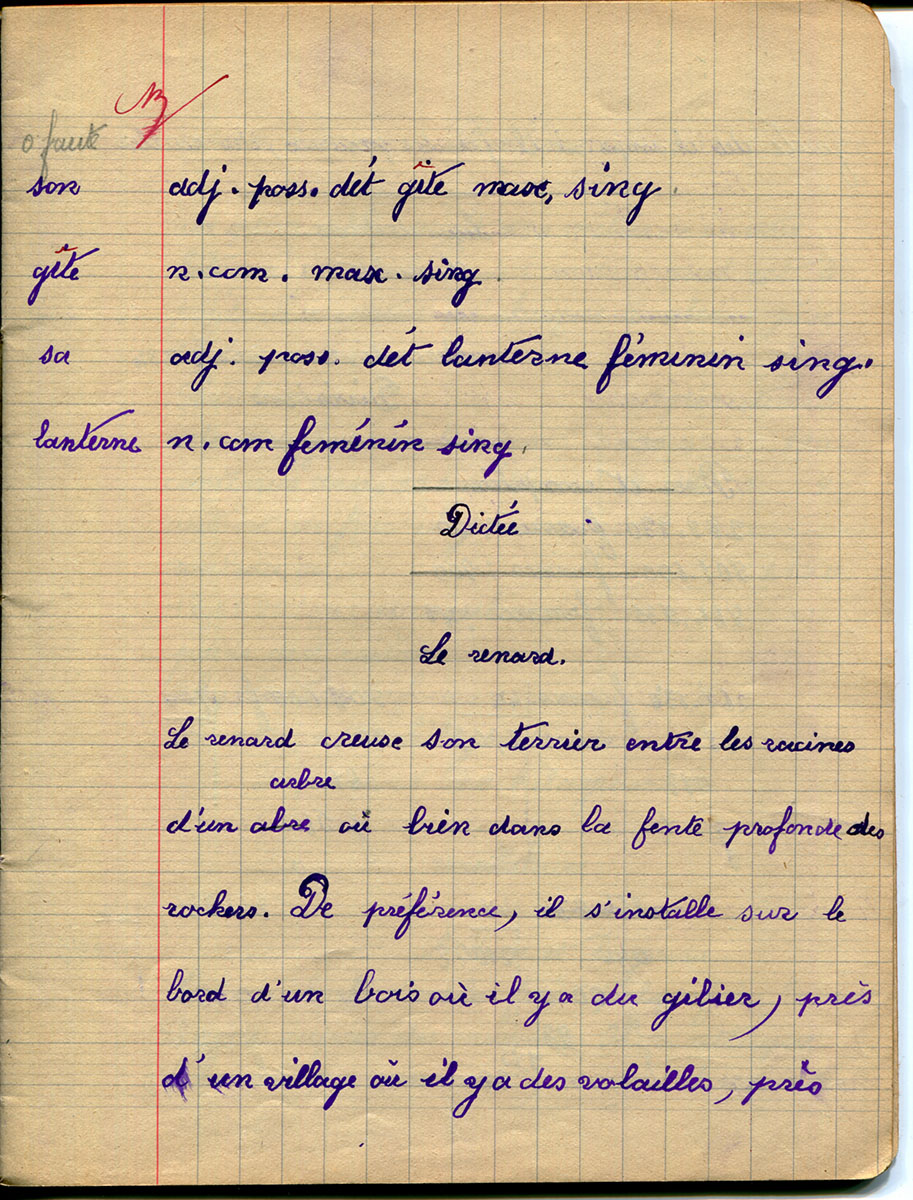 0 faute
son adj. poss. dét gîte masc, sing.
gîte n. com. masc. sing.
sa adj. poss. dét lanterne féminin sing.
lanterne n. com feménin sing.
Dictée
Le renard.
Le renard creuse son terrier entre les racines
arbre
d'un abre où bien dans la fente profonde des
rockers. De préférence, il s'installe sur le
bord d'un bois où il y a du gibier, près
d'un village où il y a des volailles, près